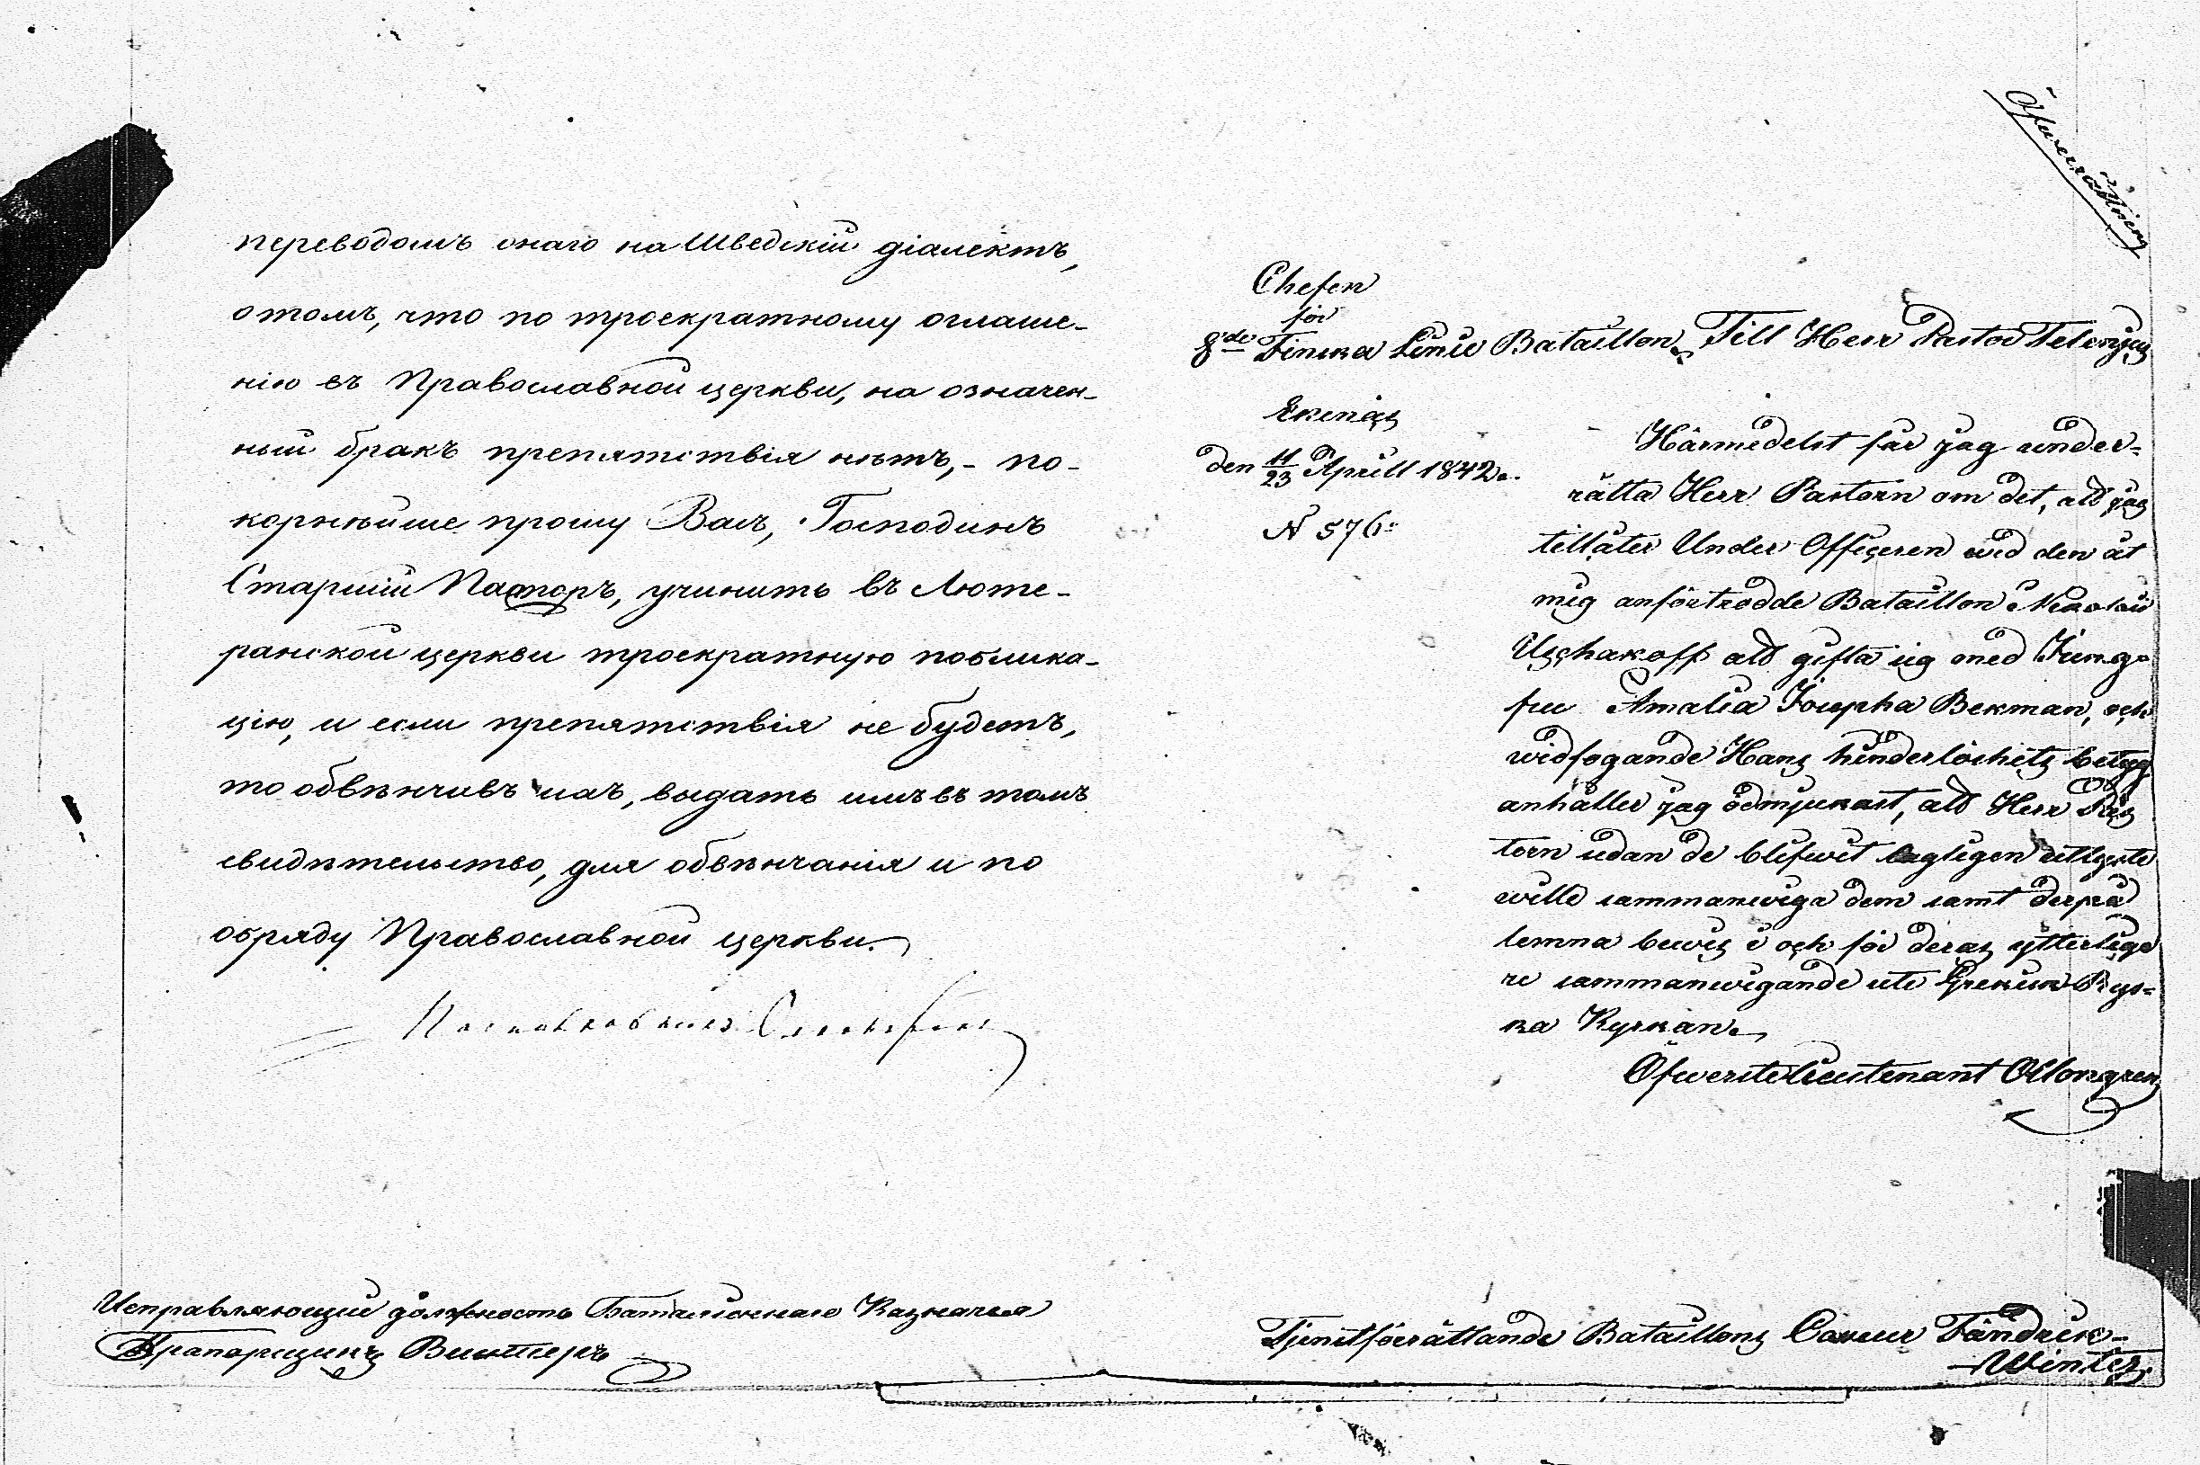 переводомъ онаго на Шведскій діалектъ,
о томъ, что по троекратному оглаше-
нію въ Православной церкви, на означен-
ный бракъ препятствія нѣтъ,- по-
корнѣйше прошу Васъ, Господинъ
Старшій Пасторъ, учинить въ Люте-
ранской церкви троекратную поблика-
цію, и если препятствія не будетъ,
то обвѣнчивъ ихъ, выдать имъ въ томъ
свидѣтельство, для обвѣнчанія и по
обряду Православной церкви.
Подполковникъ
Исправляющій должность Баталіоннаго Казначея
Прапорщикъ Винтеръ
Öfversättning
Chefen
för
8de Finska Linie Bataillon
Till Herr Pastor
Ekenäs
den 11/23 Aprill 1842.
N 576.
Härmedelst får jag under-
rätta Herr Pastorn om det, att jag
tillåter Under Officeren wid den åt
mig anförtrodde Bataillon Nikolai
Uschakoff att gifta sig med Jung-
fru Amalia Josepha Bekman, och
widfogande Hans hinderlöshets betyg
anhåller jag ödmjukast, att Herr Pas
torn sedan de blifwit lagligen utlyste
wille sammanwiga dem samt derpå
lemna bewis i och för deras ytterliga
re sammanwigande uti Grekisk Rys-
ka Kyrkan.
Öfwerstelieutenant Ollongren
Tjenstförrättande Bataillons Casseur Fändrik
Winter.